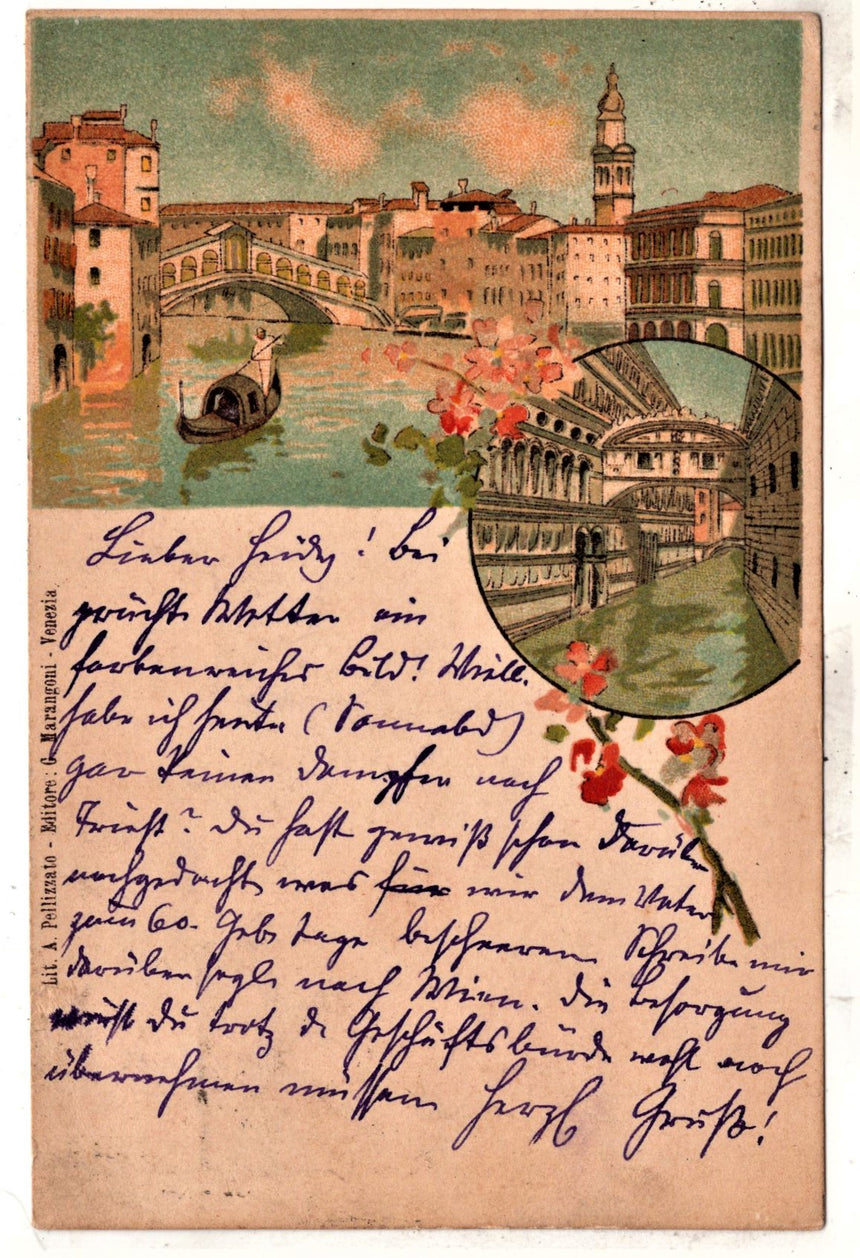 Lieber Heidg! Bei
prächt. Wetter ein
farbenreiches Bild! Viell.
habe ich heute (Sonnabd)
gar keinen Dampfer nach
Triest? Du hast gewiß schon darüber
nachgedacht, was für wir dem Vater
zum 60. Gebtstage bescheeren. Schreibe mir
darüber sogl. nach Wien. Die Besorgung
wirst Du trotz d. Geschäftsbürde wohl noch
übernehmen müssen Herzl Gruß!
Lit. A. Pellizzato - Editore: G. Marangoni - Venezia